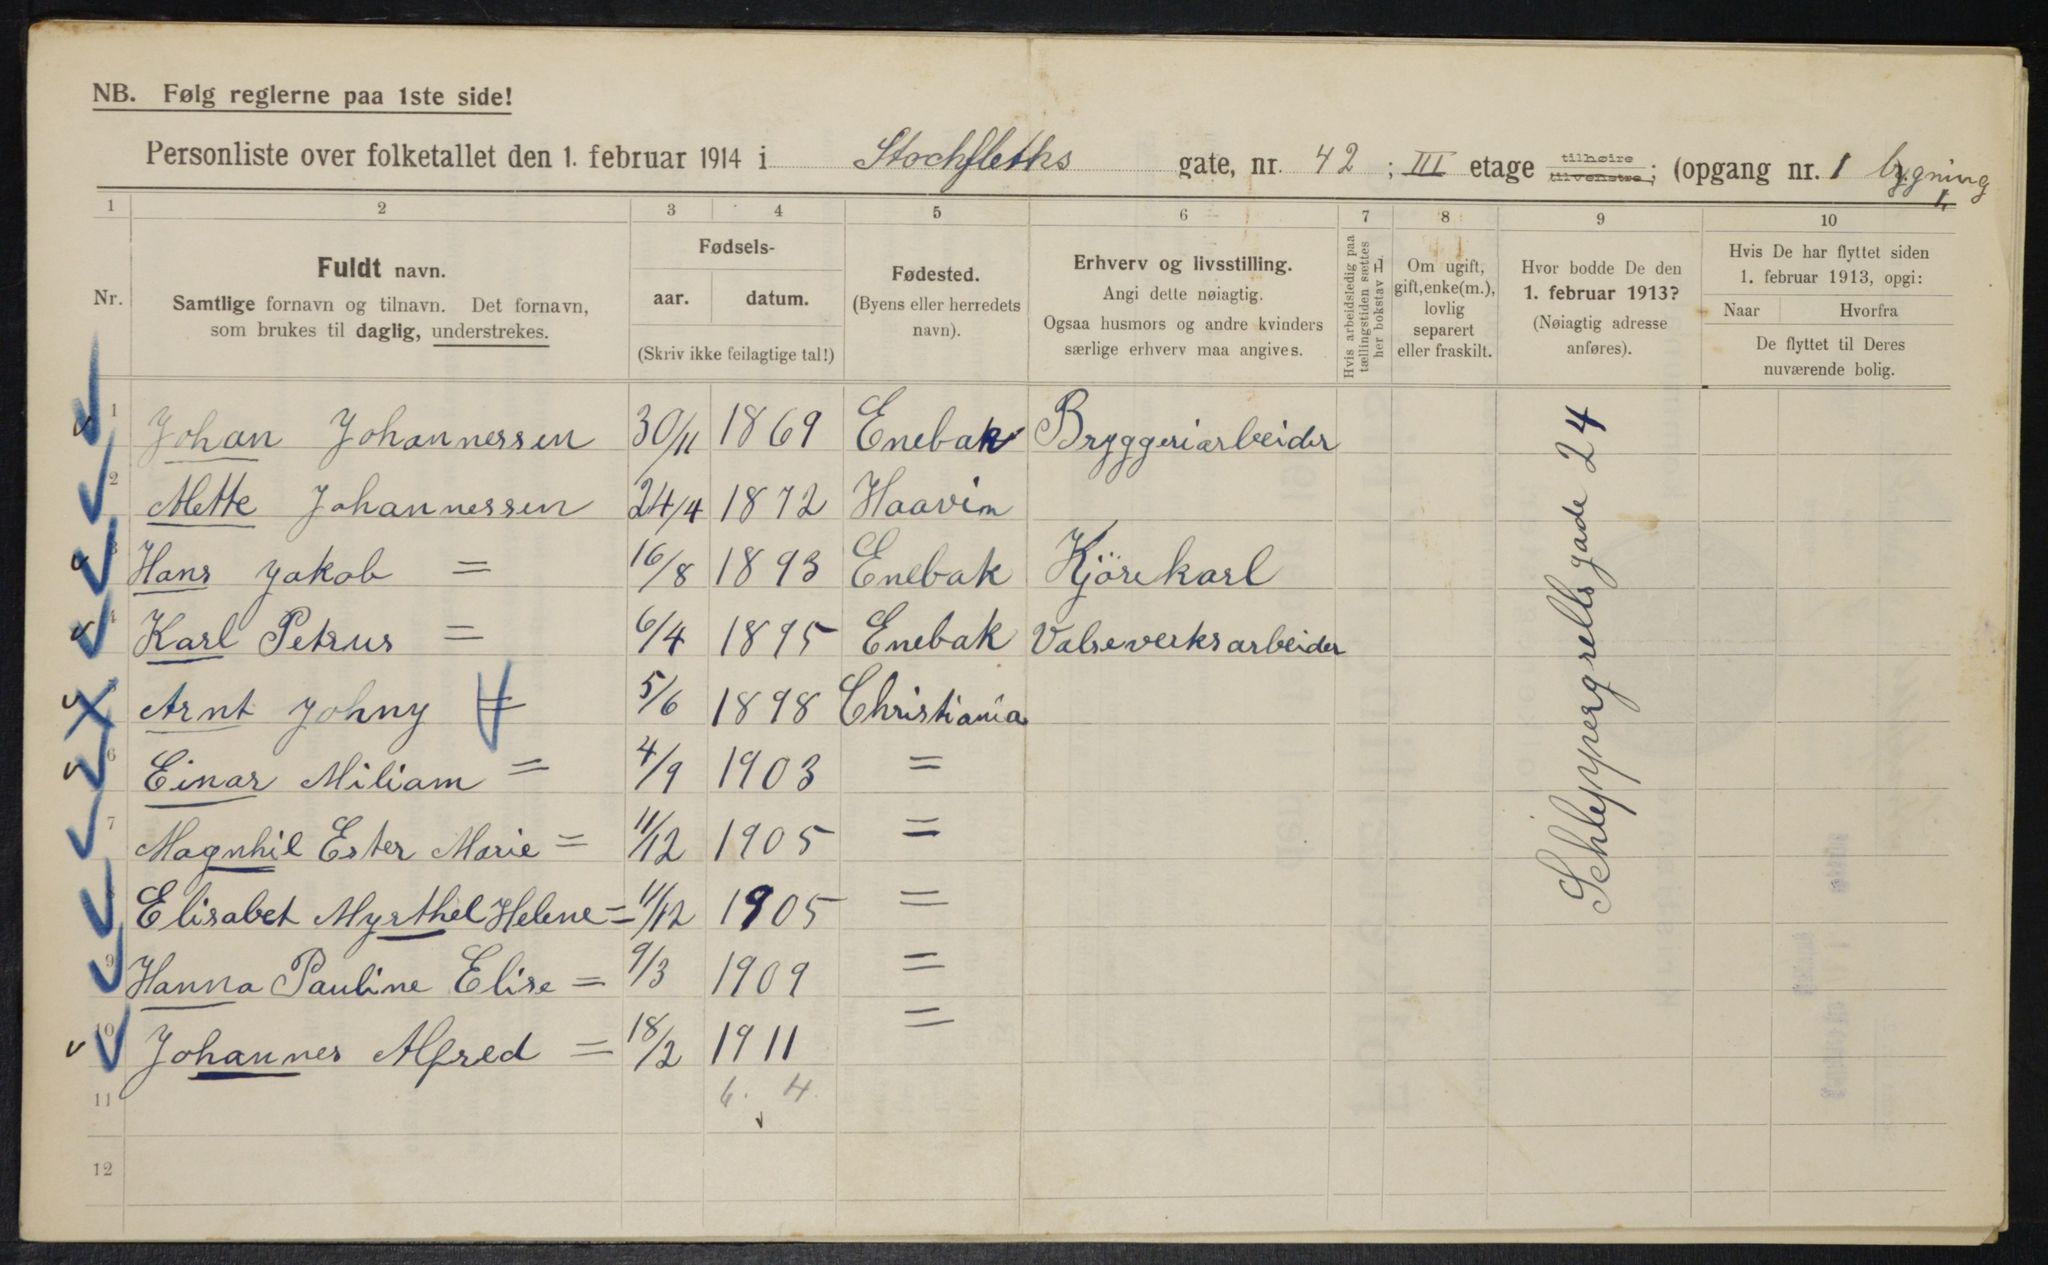 NB. Følg reglerne paa 1ste side!
Personliste over folketallet den 1. februar 1914 i Stochfleths gate, nr. 42 ; III etage tilhøire tilvenstre; (opgang nr. 1 bygning 1,
1 2 3 4 5 6 7 8 9 10
Nr.
Fuldt navn.
Samtlige fornavn og tilnavn. Det fornavn,
som brukes til daglig, understrekes.
Fødsels-
aar. datum.
(Skriv ikke feilagtige tal!)
Fødested.
(Byens eller herredets
navn).
Erhverv og livsstilling.
Angi dette nøiagtig.
Ogsaa husmors og andre kvinders
særlige erhverv maa angives.
Hvis arbeidsledig paa
tællingstiden sættes
her bokstav L
Om ugift,
gift, enke(m.),
lovlig
separert
eller fraskilt.
Hvor bodde De den
1. februar 1913?
(Nøiagtig adresse
anføres).
Hvis De har flyttet siden
1. februar 1913, opgi:
Naar Hvorfra
De flyttet til Deres
nuværende bolig.
1 Johan Johannessen 30/11 1869 Enebak Bryggeriarbeider
2 Mette Johannessen 24/4 1872 Haavin
3 Hans Jakob = 16/8 1893 Enebak Kjörekarl
4 Karl Petrus = 6/4 1895 Enebak Valseverksarbeider
Arnt Johny = 5/6 1898 Christiania
6 Einar Miliam = 4/9 1903 =
7 Magnhil Ester Marie = 11/12 1905 =
8 Elisabet Myrthel Helene = 11/12 1905 =
9 Hanna Pauline Elise = 9/3 1909 =
10 Johannes Alfred = 18/2 1911 =
Schleppergrells gade 24
11 6. 4.
12